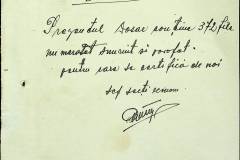 Prezentul Dosar conține 372 file
numerotat șnuruit și parafat
pentru care se certifică de noi
șef secție